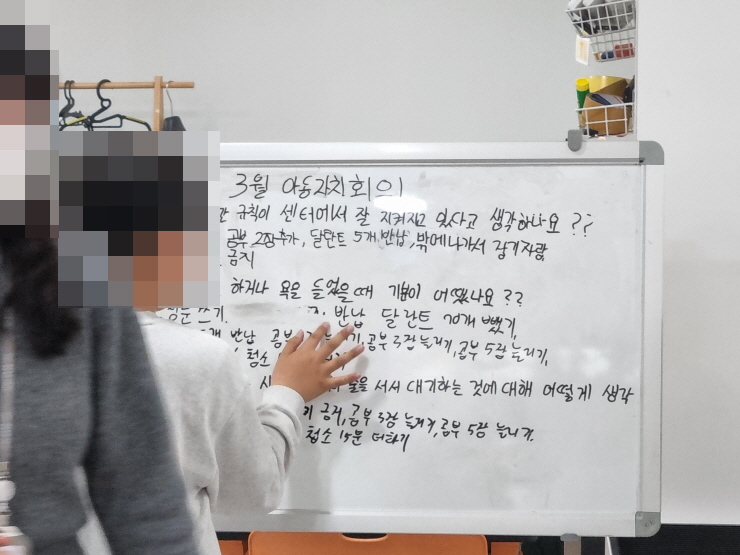 3월 아동자치회의
규칙이 센터에서 잘 지켜지고 있다고 생각하나요??
공부 2장추가, 달란트 5개 반납, 밖에나가서 장기자랑
금지
하거나 욕을 들었을때 기분이 어땠나요??
쓰기. 반납 달란트 70개 뺐기,
반납 공부 공부 3장 늘리기, 공부 5장 늘리기,
청소
서서 대기하는 것에 대해 어떻게 생각
금지, 공부 3장 늘리기, 공부 5장 늘리기.
청소 15분 더하기